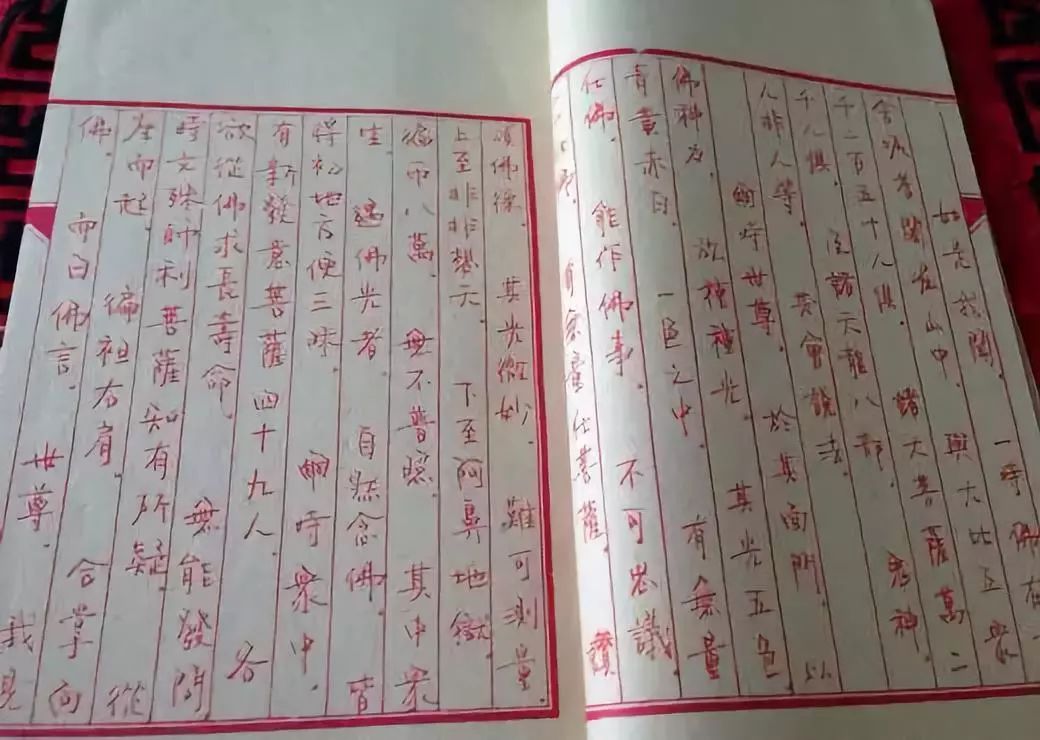 如是我聞。一時佛在
舍城耆闍崛山中。與大比丘眾
千二百五十人俱。諸大菩薩萬二
千人俱。及諸天龍八部。鬼神
人非人等。共會說法。
爾時世尊。於其面門。以
佛神力。放種種光。其光五色
青黃赤白。一色之中。有無量
化佛。能作佛事。不可思議
化佛。有無量化菩薩。讚
頌佛德。其光微妙。難可測量。
上至非非想天。下至阿鼻地獄。
遍帀八萬。無不普照。其中眾
生。遇佛光者。自然念佛。皆
得初地方便三昧。爾時眾中。
有新發意菩薩四十九人。各
欲從佛求長壽命。無能發問
時文殊師利菩薩知有所疑。從
座而起。偏袒右肩。合掌向
佛。而白佛言。世尊。我見